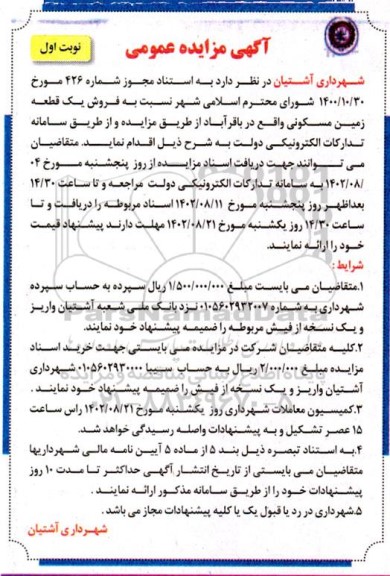 آگهی مزایده عمومی
نوبت اول
شهرداری آشتیان در نظر دارد به استناد مجوز شماره ۴۲۶ مورخ
۱۴۰۰/۱۰/۳۰ شورای محترم اسلامی شهر نسبت به فروش یک قطعه
زمین مسکونی واقع در باقرآباد از طریق مزایده و از طریق سامانه
تدارکات الکترونیکی دولت به شرح ذیل اقدام نمایند. متقاضیان
می توانند جهت دریافت اسناد مزایده از روز پنجشنبه مورخ ۰۴
/۱۴۰۲/۰۸ به سامانه تدارکات الکترونیکی دولت مراجعه و تا ساعت ۱۴/۳۰
بعداظهر روز پنجشنبه مورخ ۱۴۰۲/۰۸/۱۱ اسناد مربوطه را دریافت و تا
ساعت ۱۴/۳۰ روز یکشنبه مورخ ۱۴۰۲/۰۸/۲۱ مهلت دارند پیشنهاد قیمت
خود را ارائه نمایند.
شرایط :
۱.متقاضیان می بایست مبلغ ۱/۵۰۰/۰۰۰/۰۰۰ ریال سپرده به حساب سپرده
شهرداری به شماره ۰۱۰۵۶۰۲۹۳۲۰۰۷ نزد بانک ملی شعبه آشتیان واریز
و یک نسخه از فیش مربوطه را ضمیمه پیشنهاد خود نمایند.
۲.کلیه متقاضیان شرکت در مزایده می بایستی جهت خرید اسناد
مزایده مبلغ ۲/۰۰۰/۰۰۰ ریال به حساب سیبا ۰۱۰۵۶۰۲۹۳۰۰۰۰ شهرداری
آشتیان واریز و یک نسخه از فیش را ضمیمه پیشنهاد خود نمایند .
۳.کمیسیون معاملات شهرداری روز یکشنبه مورخ ۱۴۰۲/۰۸/۲۱ راس ساعت
۱۵ عصر تشکیل و به پیشنهادات واصله رسیدگی خواهد شد.
۴.به استناد تبصره ذیل بند ۵ از ماده ۵ آیین نامه مالی شهرداریها
متقاضیان می بایستی از تاریخ انتشار آگهی حداکثر تا مدت ۱۰ روز
پیشنهادات خود را از طریق سامانه مذکور ارائه نمایند .
۵.شهرداری در رد یا قبول یک یا کلیه پیشنهادات مجاز می باشد .
شهرداری آشتیان